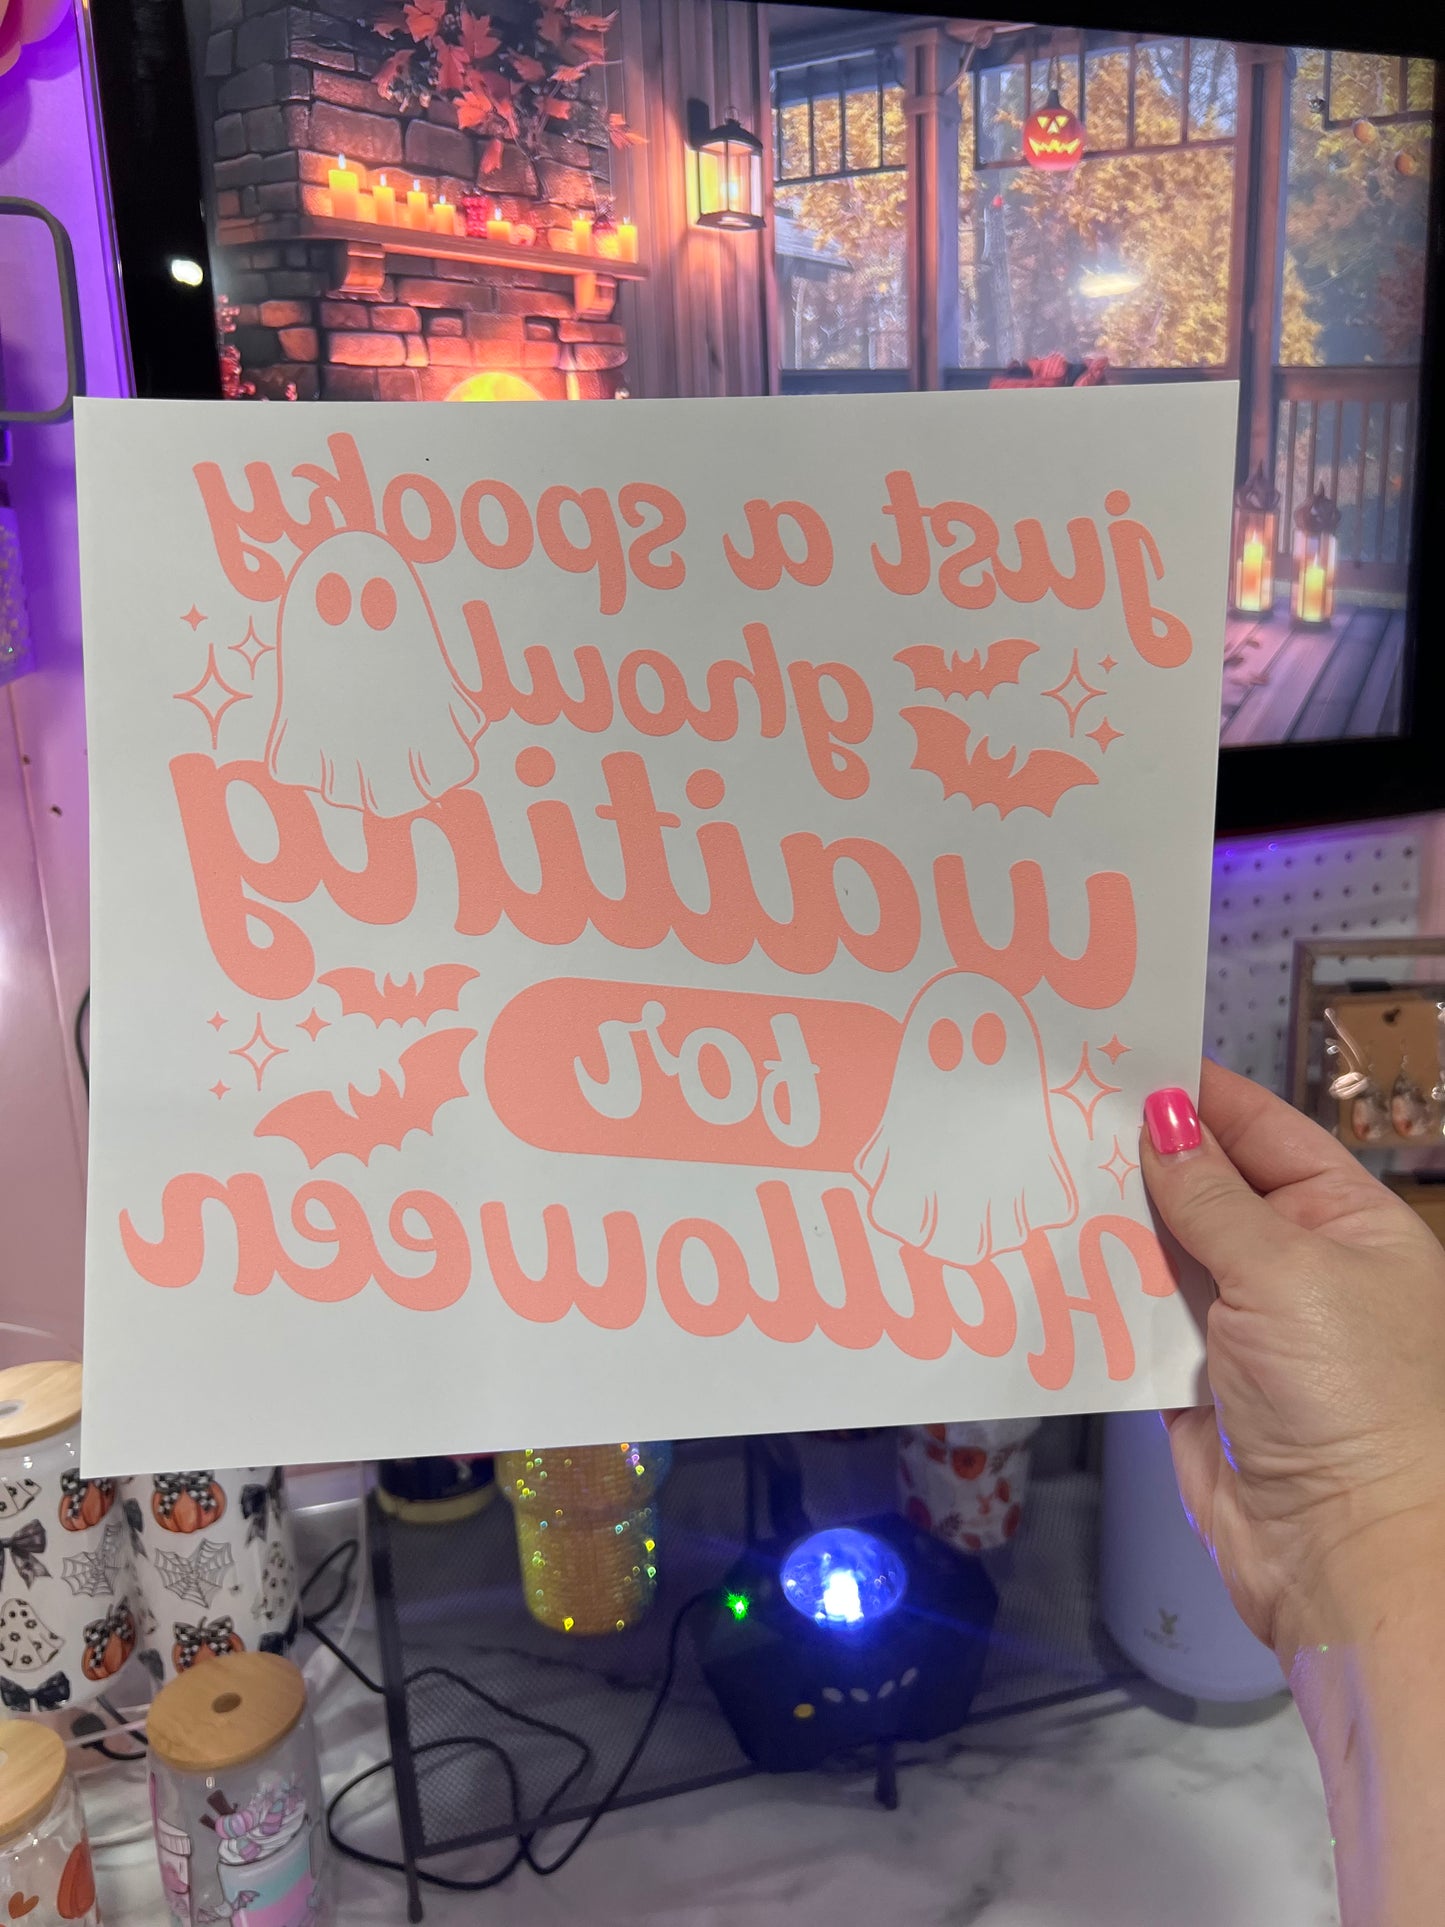 just a spooky
ghoul
waiting
for
Halloween